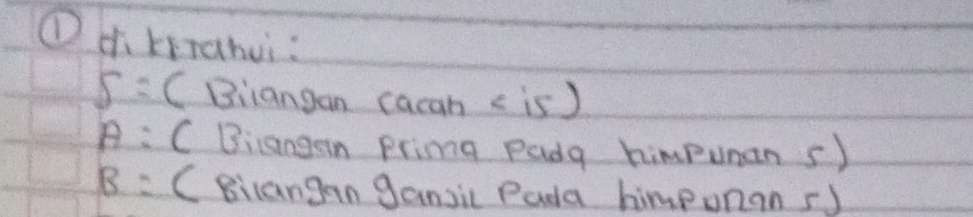 ① diketahui:
S = ( Bilangan cacah < 15 )
A = ( Bilangan prima pada himpunan S )
B = ( Bilangan ganjil pada himpunan S )